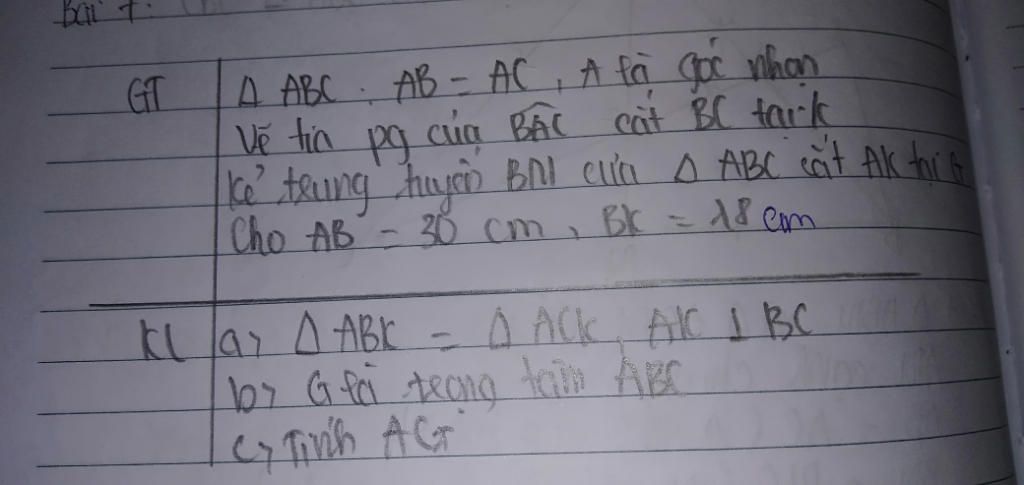 Bài 7:
GT Δ ABC. AB = AC, A là góc nhọn
Vẽ tia pg của BAC cắt BC tại k
kẻ trung tuyến BM của Δ ABC cắt AK tại G
Cho AB = 30 cm, BK = 18 cm
KL a> Δ ABK = Δ ACK, AK ⊥ BC
b> G là trọng tâm ABC
c> Tính AG